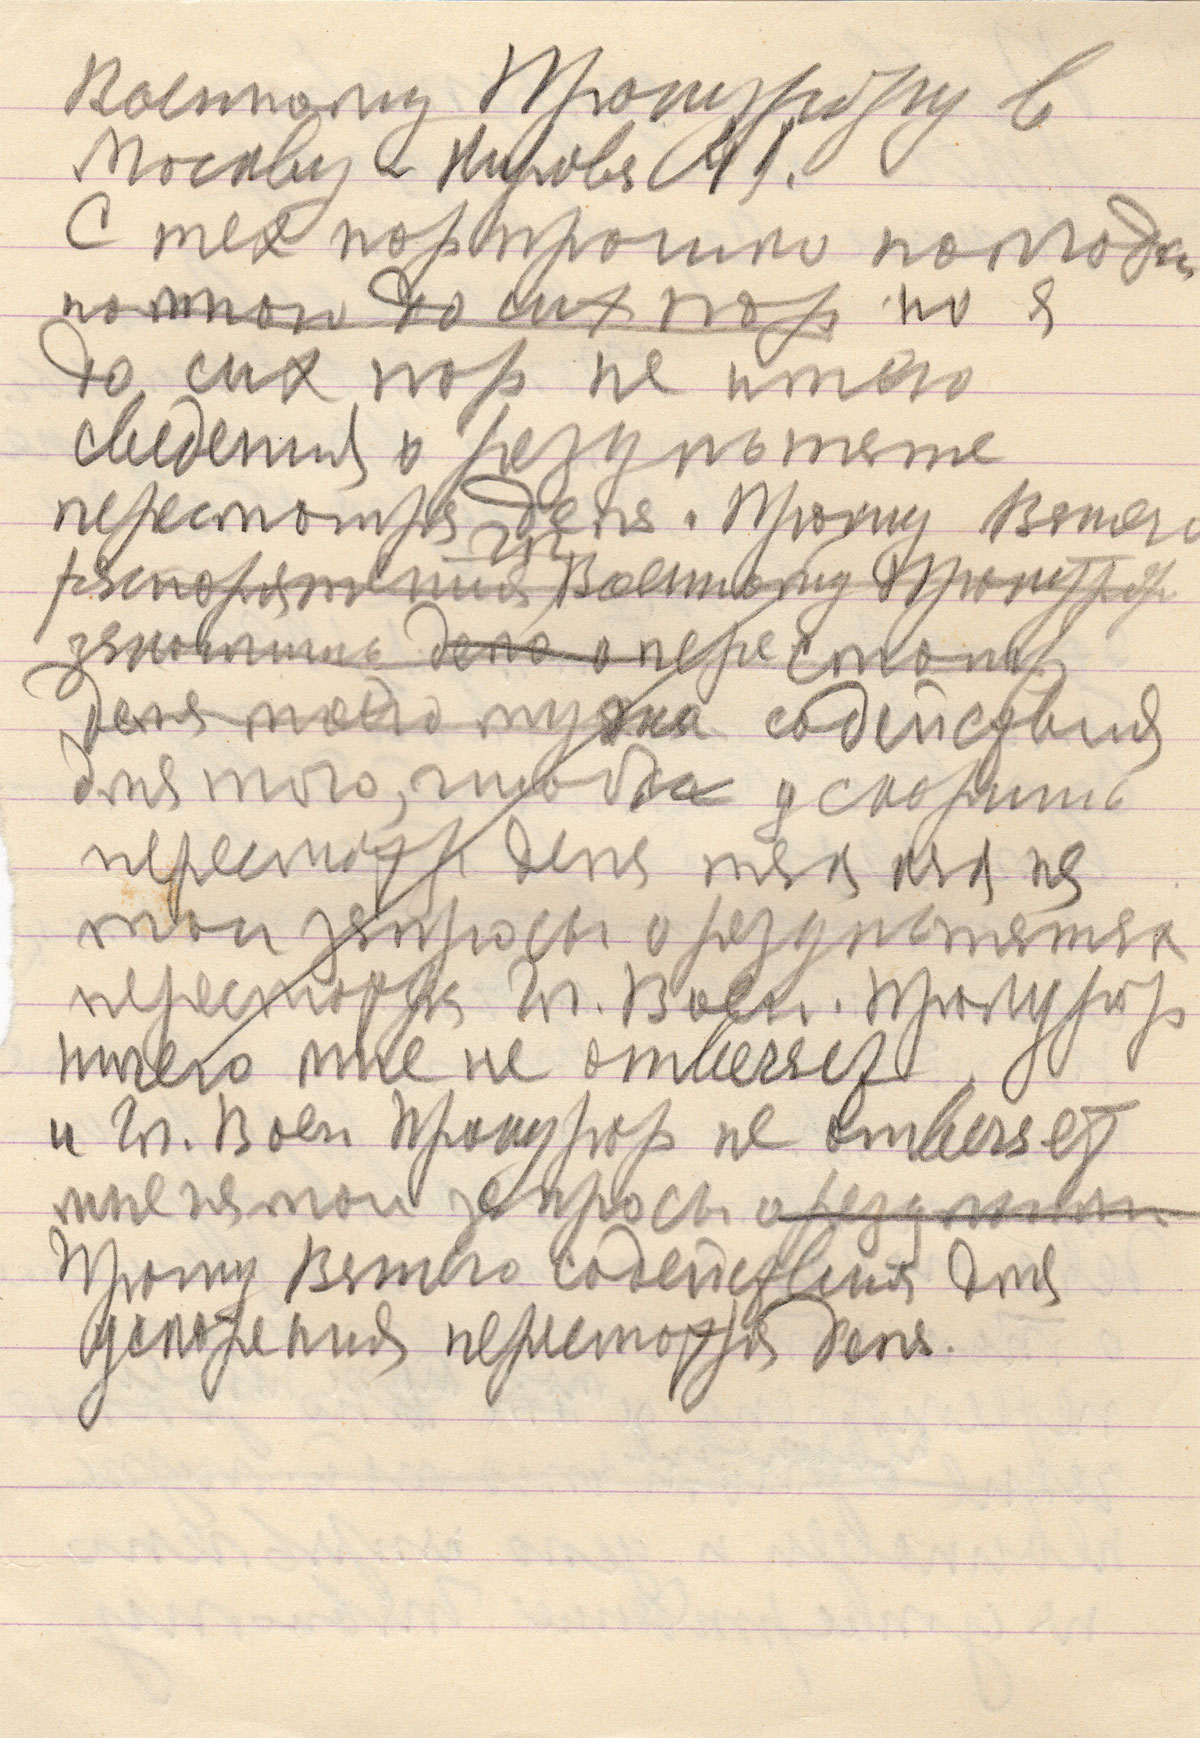 Военному Прокурору в
Москву Кирова 41.
С тех пор прошло полгода
но мной до сих пор но я
до сих пор не имею
сведения о результате
пересмотра дела. Прошу Вашего
распоряжения Гл. Военному Прокурору
закончить дело о пересмотр
дела моего мужа содействия
для того, чтобы ускорить
пересмотр дела так как на
мои запросы о результатах
пересмотра Гл. Воен. Прокурор
ничего мне не отвечает
и Гл. Воен Прокурор не отвечает
мне на мои запросы о результат
Прошу Вашего содействия для
ускорения пересмотра дела.